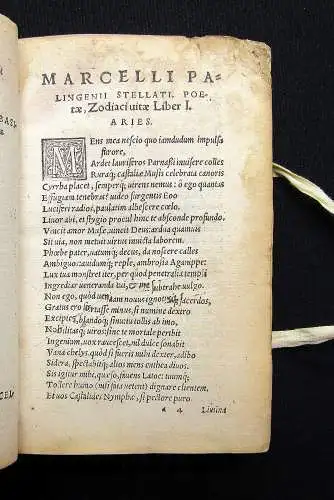 MARCELLI PA-
LINGENII STELLATI, POE-
tæ, Zodiaci uitæ Liber I.
ARIES.
MEns mea nescio quo iamdudum impulsa
furore,
Ardet lauriferos Parnassi inuisere colles
Ruraq; castaliæ Musis celebrata canoris
Cyrrha placet, semperq; uirens nemus: ô ego quantas
Effugiam tenebras! uideo surgentis Eoo
Luciferi radios, paulatim albescere cœlo.
Liuor abi, et stygio procul hinc te absconde profundo.
Vincit amor Musæ, uincit Deus: ardua quamuis
Sit uia, non metuit uirtus inuicta laborem.
Phœbe pater, uatumq; decus, da noscere calles
Ambiguo: cauduntq; reple, ambrosio Aganippes
Lux tua monstret iter, per quod penetralia templi
Ingrediar ueneranda tui, et me subtrahe uulgo.
Non ego, quod iam nouus ignotusq; sacerdos,
Gratus ero fortasse minus, si numine dextro
Excipies, blandoq; sinu tollis ab imo,
Nobilitasq; uiros: sine te mortale peribit
Ingenium, uox rauca est, nil dulce sonabit
Vana chelys. quòd si fueris mihi dexter, adibo
Sidera, spectabitq; alios mens enthea diuos.
Sis igitur mihi, quæso, fauens
Tollere humo (nisi fata uetent) dignare clientem.
Et uos Castalides Nymphæ, si pectore puro
a 4 Limina
BASI
CEM